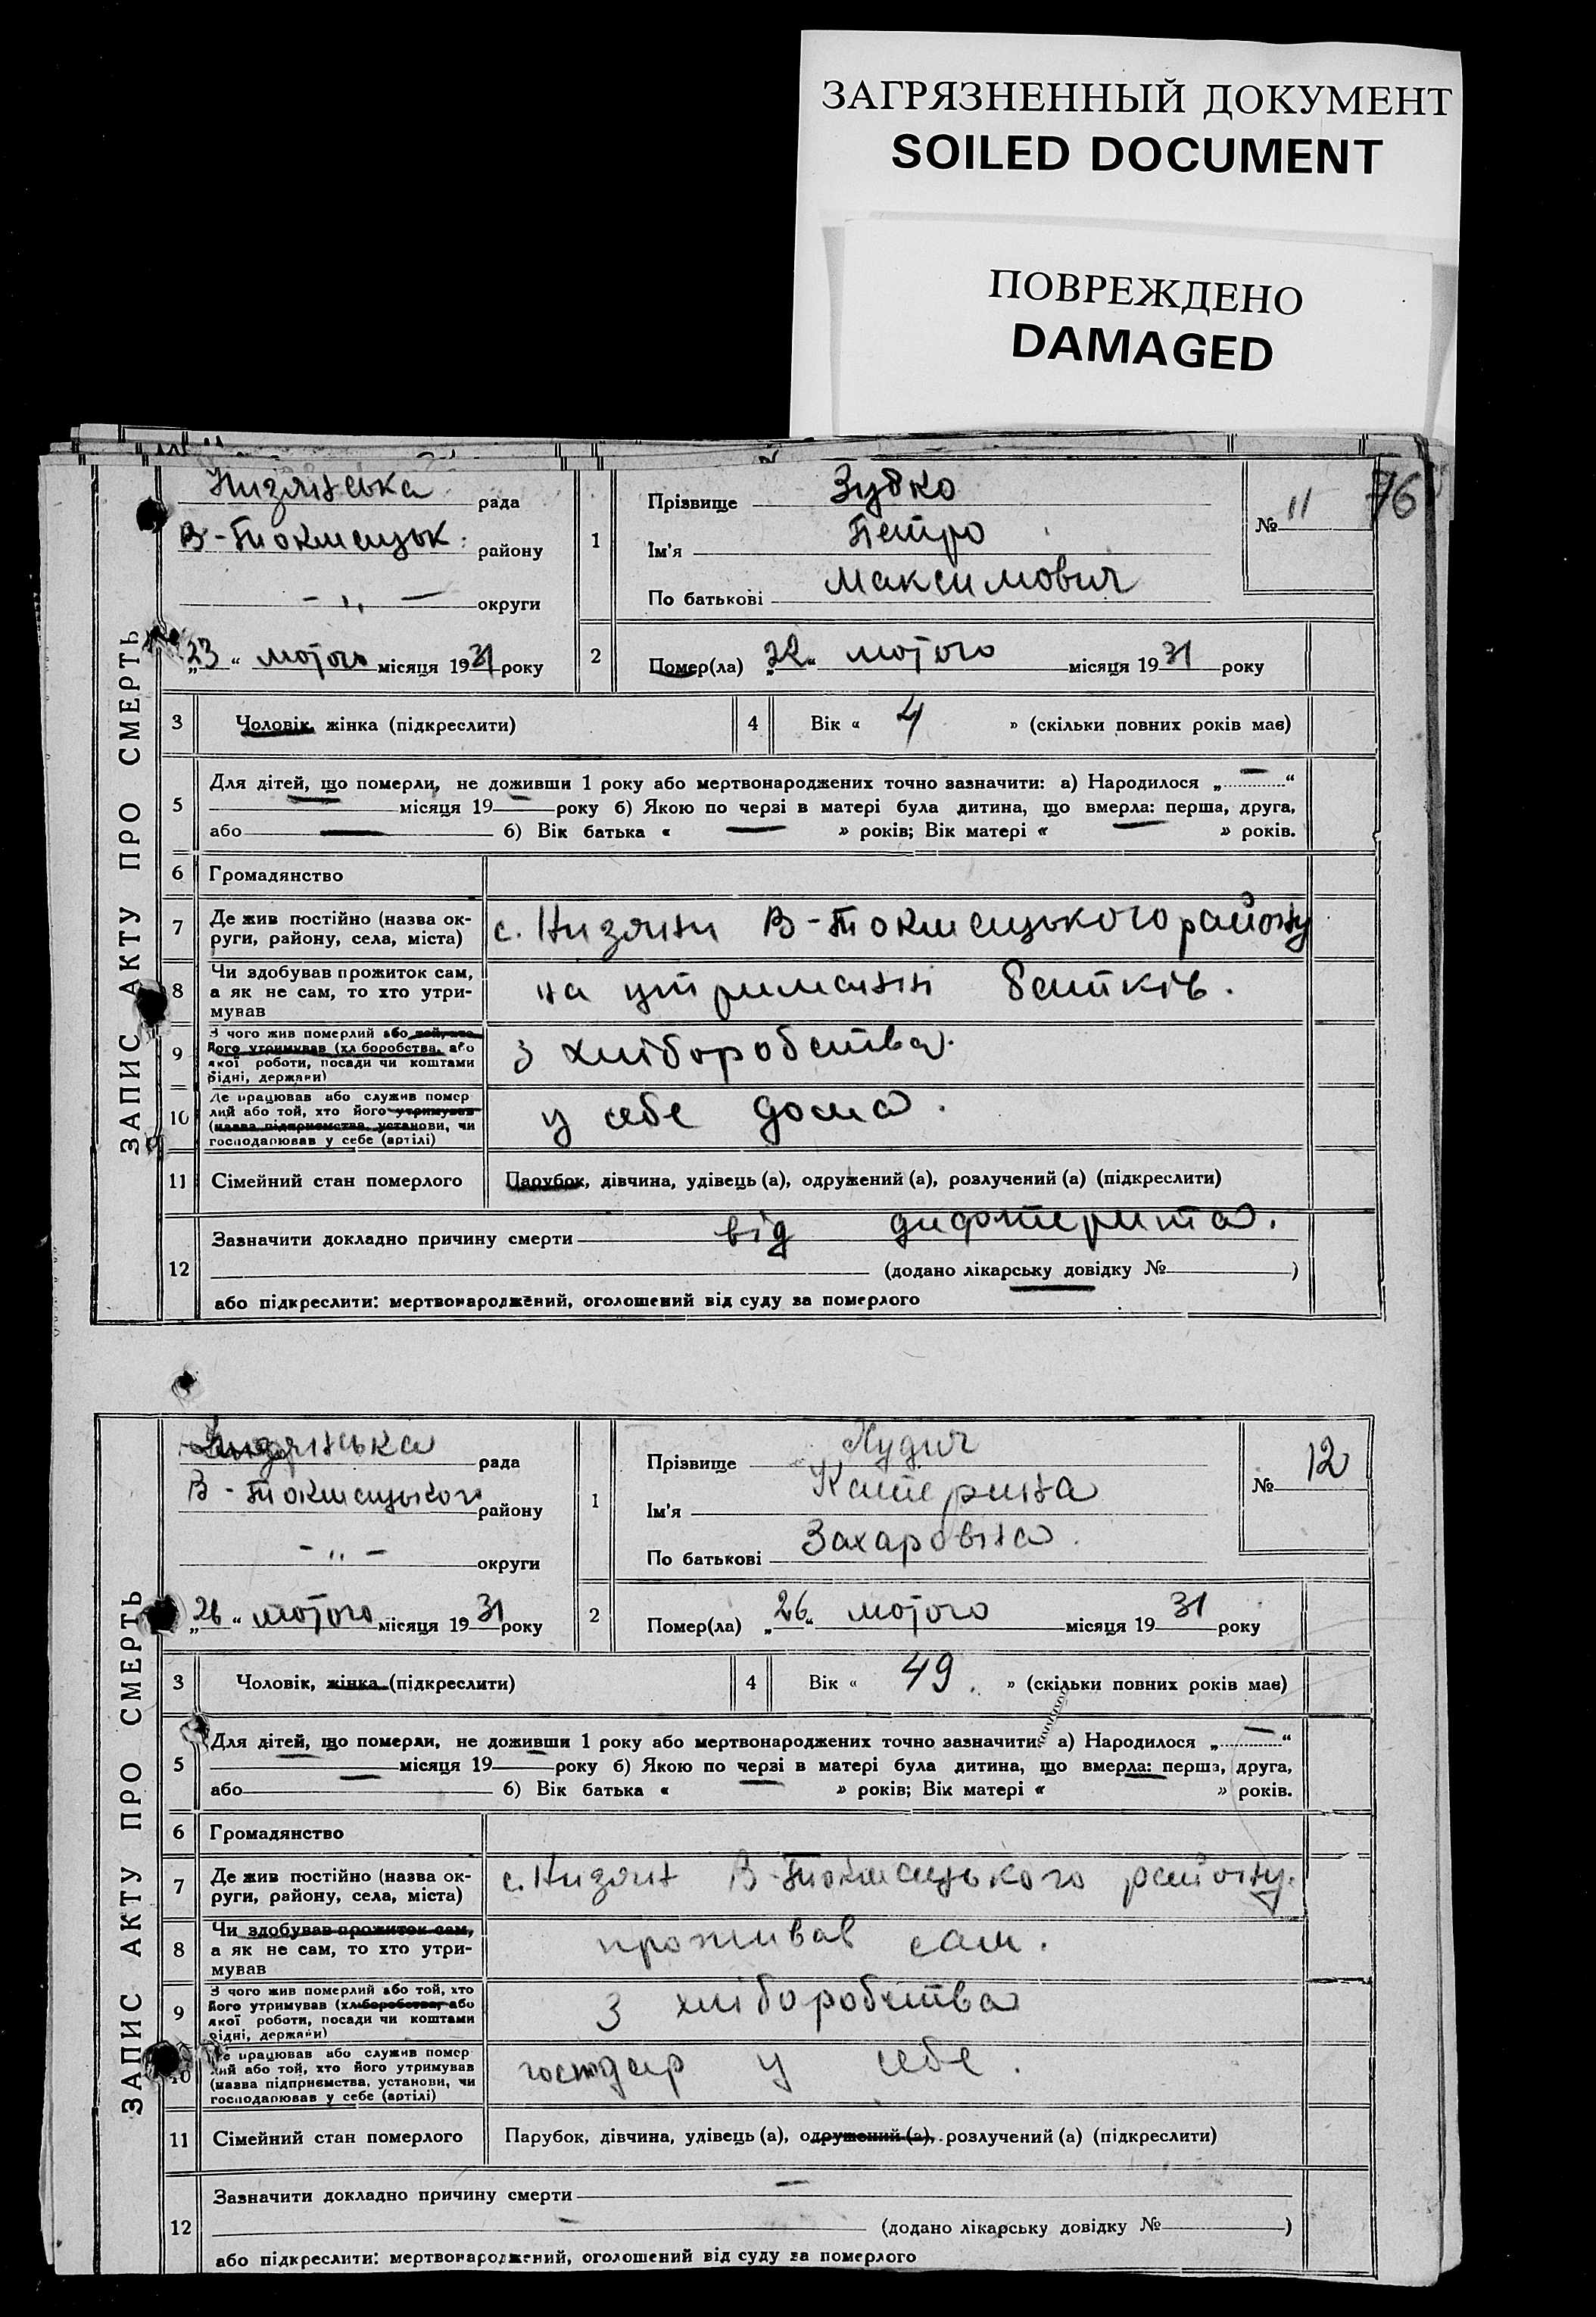 ЗАГРЯЗНЕННЫЙ ДОКУМЕНТ
SOILED DOCUMENT
ПОВРЕЖДЕНО
DAMAGED
76
ЗАПИС АКТУ ПРО СМЕРТЬ
Низянська рада
В-Токмацьк. району
- „ - округи
„23“ лютого місяця 1931 року
1 Прізвище Зубко
Ім'я Петро
По батькові Максимович
№ 11
2 Помер(ла) „22“ лютого місяця 1931 року
3 Чоловік, жінка (підкреслити)
4 Вік « 4 » (скільки повних років має)
5 Для дітей, що померли, не доживши 1 року або мертвонароджених точно зазначити: а) Народилося „—“
місяця 19— року б) Якою по черзі в матері була дитина, що вмерла: перша, друга,
або — б) Вік батька « — » років; Вік матері « — » років.
6 Громадянство
7 Де жив постійно (назва ок-
руги, району, села, міста) с. Низяни В-Токмацького району
8 Чи здобував прожиток сам,
а як не сам, то хто утри-
мував на утриманні батьків.
9 З чого жив померлий або той, хто
його утримував (хліборобства, або
якої роботи, посади чи коштами
рідні, держави) з хліборобства.
10 Де працював або служив помер-
лий або той, хто його утримував
(назва підприємства, установи, чи
господарював у себе (артілі) у себе дома.
11 Сімейний стан померлого Парубок, дівчина, удівець (а), одружений (а), розлучений (а) (підкреслити)
12 Зазначити докладно причину смерти від дифтерита.
(додано лікарську довідку № )
або підкреслити: мертвонароджений, оголошений від суду за померлого
ЗАПИС АКТУ ПРО СМЕРТЬ
Низянська рада
В-Токмацького району
- „ - округи
„26“ лютого місяця 1931 року
1 Прізвище
Ім'я Катерина
По батькові Захаровна
№ 12
2 Помер(ла) „26“ лютого місяця 1931 року
3 Чоловік, жінка (підкреслити)
4 Вік « 49. » (скільки повних років має)
5 Для дітей, що померли, не доживши 1 року або мертвонароджених точно зазначити: а) Народилося „—“
місяця 19 року б) Якою по черзі в матері була дитина, що вмерла: перша, друга,
або б) Вік батька « » років; Вік матері « » років.
6 Громадянство
7 Де жив постійно (назва ок-
руги, району, села, міста) с. Низян В-Токмацького району.
8 Чи здобував прожиток сам,
а як не сам, то хто утри-
мував проживав сам.
9 З чого жив померлий або той, хто
його утримував (хліборобства, або
якої роботи, посади чи коштами
рідні, держави) з хліборобства
10 Де працював або служив помер-
лий або той, хто його утримував
(назва підприємства, установи, чи
господарював у себе (артілі) господар у себе.
11 Сімейний стан померлого Парубок, дівчина, удівець (а), одружений (а), розлучений (а) (підкреслити)
12 Зазначити докладно причину смерти —
(додано лікарську довідку № )
або підкреслити: мертвонароджений, оголошений від суду за померлого